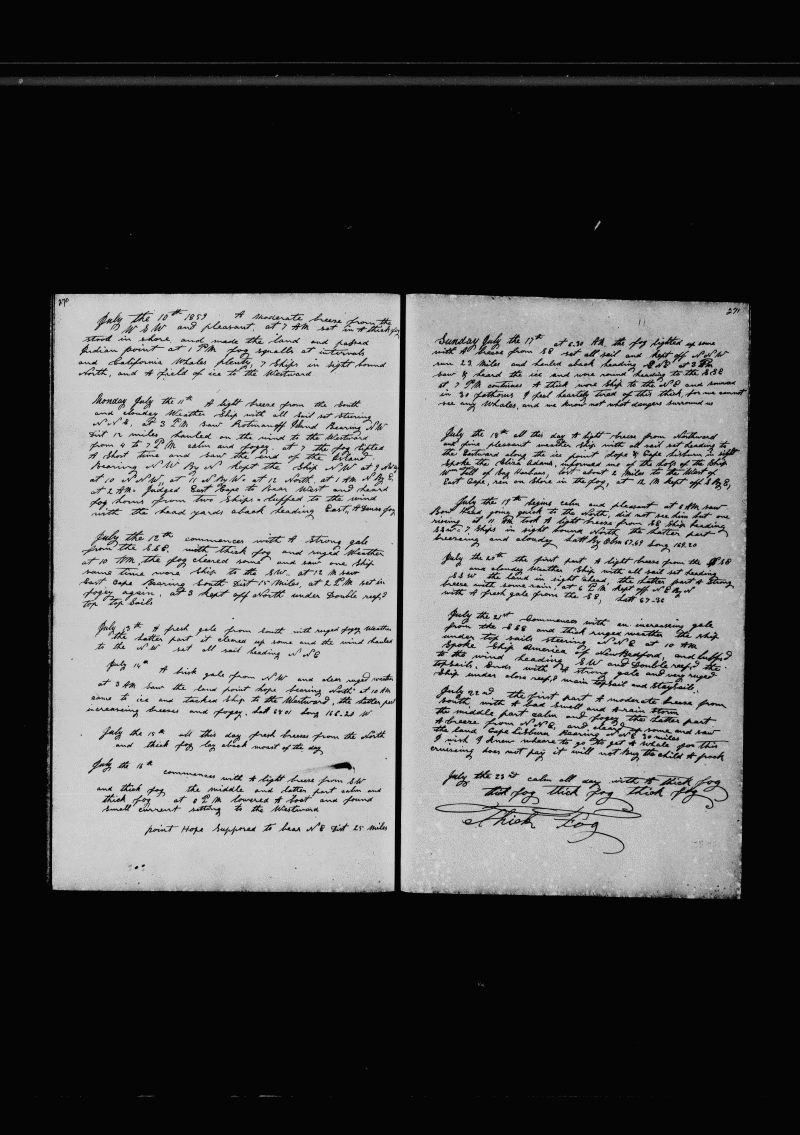 270
July the 10th 1859 A moderate breeze from the
W S W and pleasant, at 7 AM set in A thick fog
stood in shore and made the land and passed
Indian point at 1 PM fog squalls at intervals
and California Whales plenty, 7 Ships in sight bound
North, and A field of ice to the Westward
Monday July the 11th A light breeze from the South
and cloudy Weather Ship with all sail set Steering
N N E, at 3 PM saw Ratmanoff Island Bearing N W
Dist 12 miles hauled on the wind to the Westward
from 4 to 7 PM calm and foggy. at 7 the fog lifted
A Short time and saw the end of the Island
Bearing N W By N kept the Ship N W at 9
at 10 N N W, at 11 N By W. at 12 North. at 1 AM N By E,
at 2 AM. Judged East Cape to Bear West and heard
fog horns from two Ships. luffed to the wind
with the head yards aback heading East, A dense fog
July the 12th commences with A Strong gale
from the S.S.E. with thick fog and ruged Weather
at 10 AM the fog cleared some and saw one Ship
same time wore Ship to the S.W. at 12 M saw
East Cape Bearing South Dist 15 Miles, at 2 PM set in
foggy again. at 3 kept off North under Double reef'd
top top Sails
July 13th A fresh gale from South with ruged foggy Weather
the latter part it cleared up some and the wind hauled
to the N W set all sail heading N N E
July 14th A brisk gale from N W and clear ruged weather
at 3 AM saw the land point hope bearing North at 10 AM
came to ice and tacked Ship to the Westward, the latter part
increasing breezes and foggy. Latt 68.01 Long 168.20 W
July the 15th all this day fresh breezes from the North
and thick fog lay aback most of the day
July the 16th commences with A light breeze from SW
and thick fog the middle and latter part calm and
thick fog at 8 PM lowered A boat and found
Small current setting to the Westward
point Hope Supposed to bear N E Dist 25 miles
271
Sunday July the 17th at 6.30 AM. the fog lighted up some
with A breeze from SE set all sail and kept off N N W
run 23 Miles and hauled aback heading E N E at 3 PM
saw & heard the ice and wore round heading to the SSE
at 7 PM continues A thick wore Ship to the N E and sounded
in 30 fathoms I feel heartily tired of this thick, for we cannot
see any Whales, and we know not what dangers surround us
July the 18th all this day A light breeze from Northward
and fine pleasant weather Ship with all sail set heading to
the Eastward along the ice point hope & Cape lisburn in sight
Spoke the Eliza Adams, informed me of the loss of the Ship
Wm Tell of Sag Harbour, lost about 2 Miles to the West of
East Cape, ran on Shore in the fog, at 12 M kept off S By E,
July the 19th begins calm and pleasant at 6 AM saw
Bow Head going quick to the North, did not see him but one
rising at 11 AM took A light breeze from SE Ship heading
SSW. 7 Ships in sight bound North the latter part
breezing and cloudy Latt By Obsn 67.69 Long 169.20
July the 20th the first part A light breeze from the SSE
and cloudy Weather Ship with all sail set heading
S S W the land in sight ahead. the latter part A Strong
breeze with some rain. at 6 PM kept off N By N
with A fresh gale from the SE, Latt 67-36
July the 21st Commences with an increasing gale
from the SSE and thick ruged weather the Ship
under top sails Steering N N E at 10 AM
Spoke Ship America of New Bedford, and luffed
to the wind heading S W and Double reef'd the
topsails. Ends with A strong gale and very ruged
Ship under close reef'd main topsail and Staysails.
July 22nd. the first part A moderate breeze from
South, with A bad Small and A rain Storm
the middle part calm and foggy the latter part
A breeze from N N E, and cleared up some and saw
the land Cape Lisburn Bearing N N E 30 miles
I wish I knew wheare to go to get A Whale for this
cruising does not pay it will not Buy the child A frock
July the 23rd calm all day with A thick fog
thick fog thick fog thick fog
Thick Fog